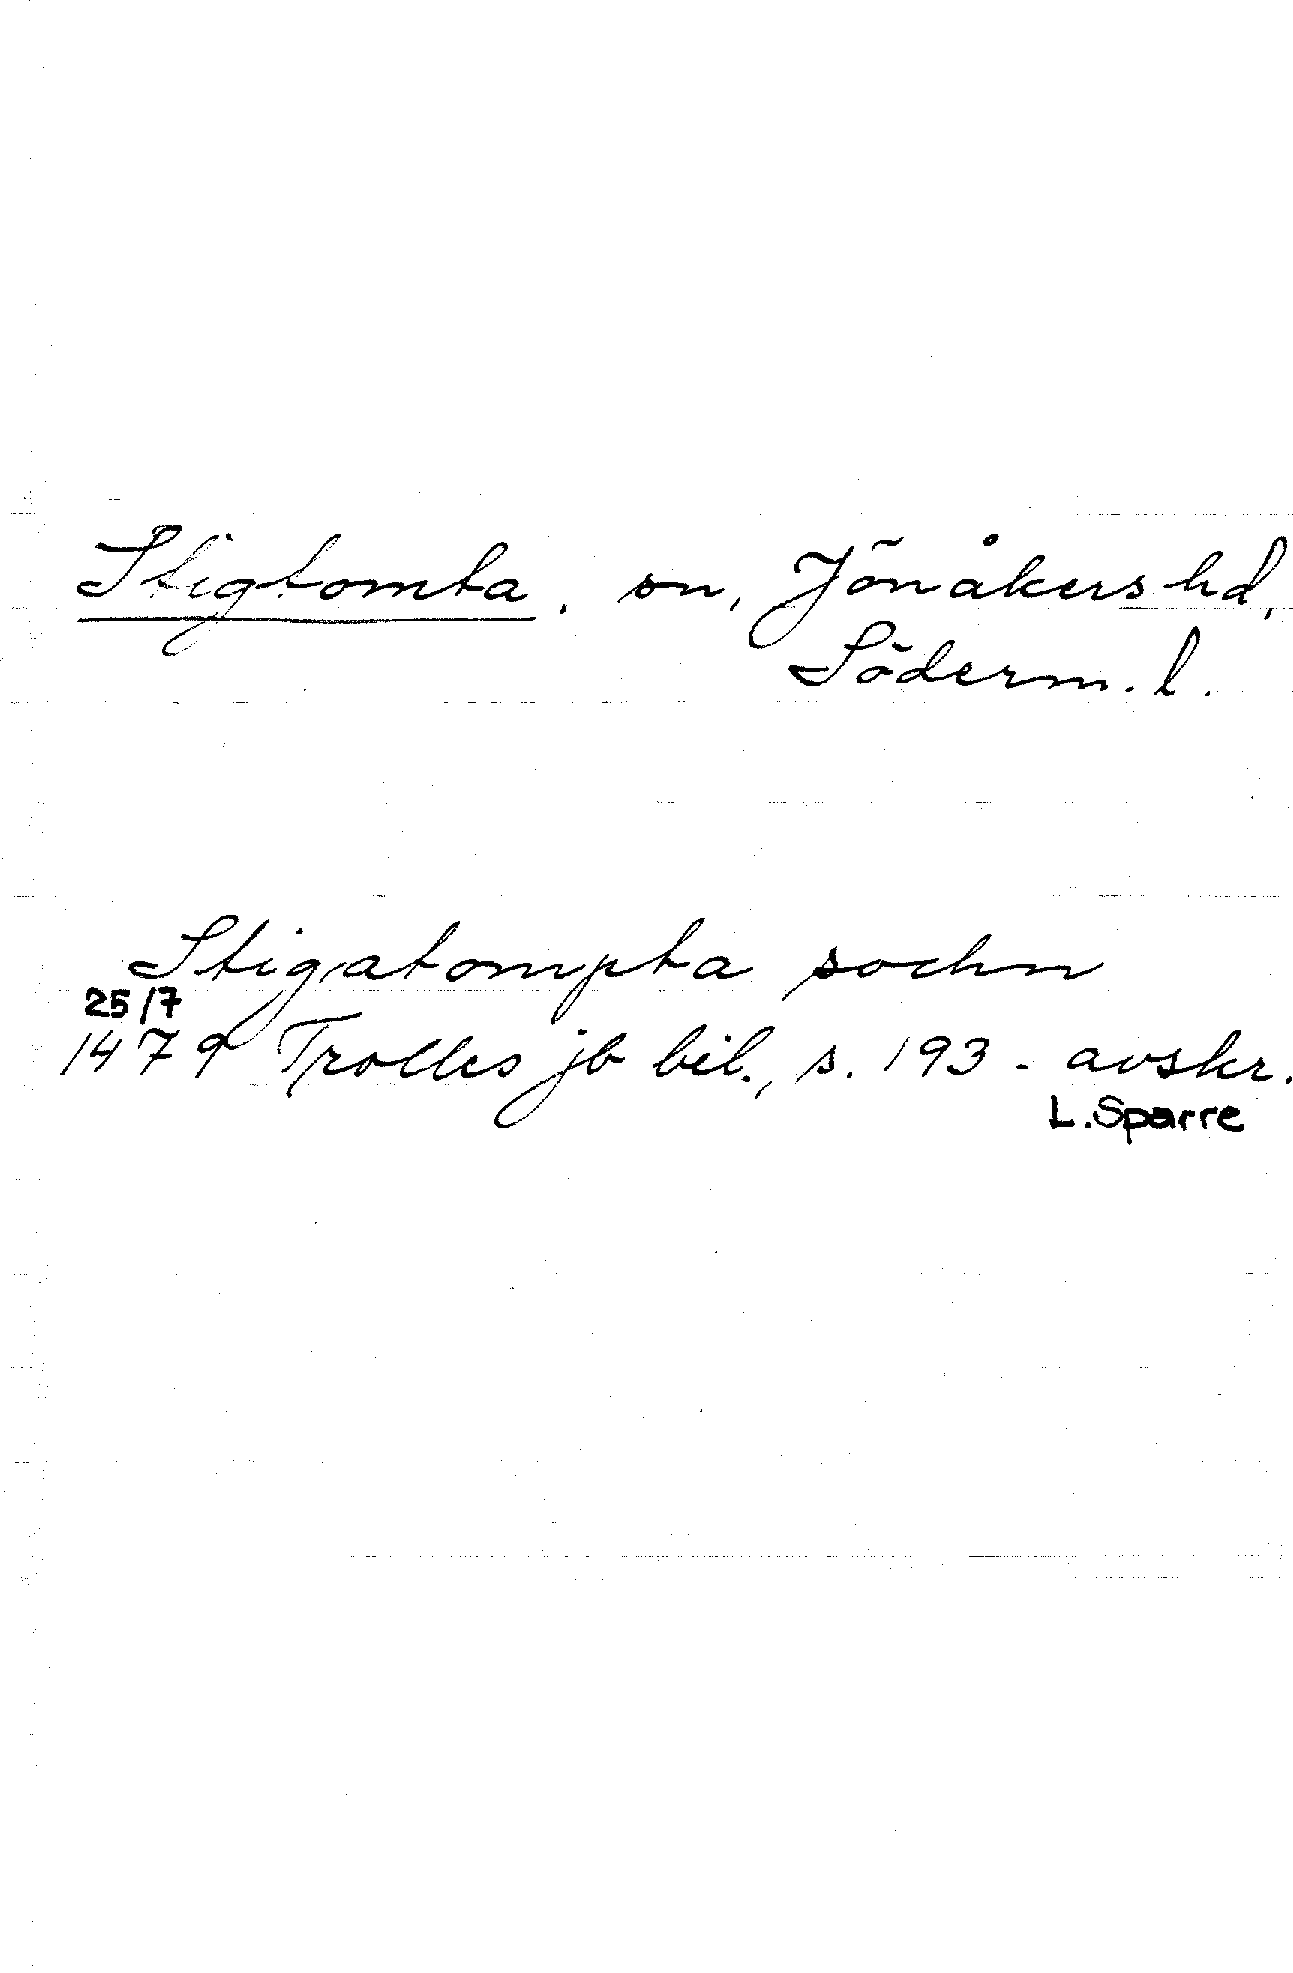 Stigtomta. sn, Jönåkers hd,
Söderm. l.
Stigatompta sochn
25/7
1479 Trolles jb bil., s. 193 - avskr.
L. Sparre